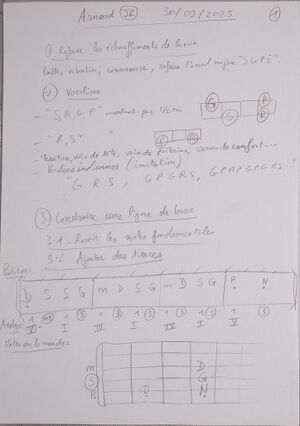 Arnaud 30/09/2025 1
① Refaire les échauffements de base
Paille, vibration, consonance, refaire l'accord majeur "S G P S".
② Vocalises
G P
S R
- "S, R, G, P" montant par 1/2 ton
- "R, S" "
S R
- Tessiture, voix de tête, voix de poitrine, zone de confort...
- Vocalises indiennes (imitation)
"G R S , G P G R S, G P N P G P G R S..."
③ Construire une ligne de basse
3-1- Jouer les notes fondamentales
3-2- Ajouter des tierces
Partition:
D S S G m D S G m D S G P N
Analyse: 1 1 3 1 3 1 3 1 3 1 3 1 3
V I IV I IV I V
Notes sur le manche:
m D
S G
P D N